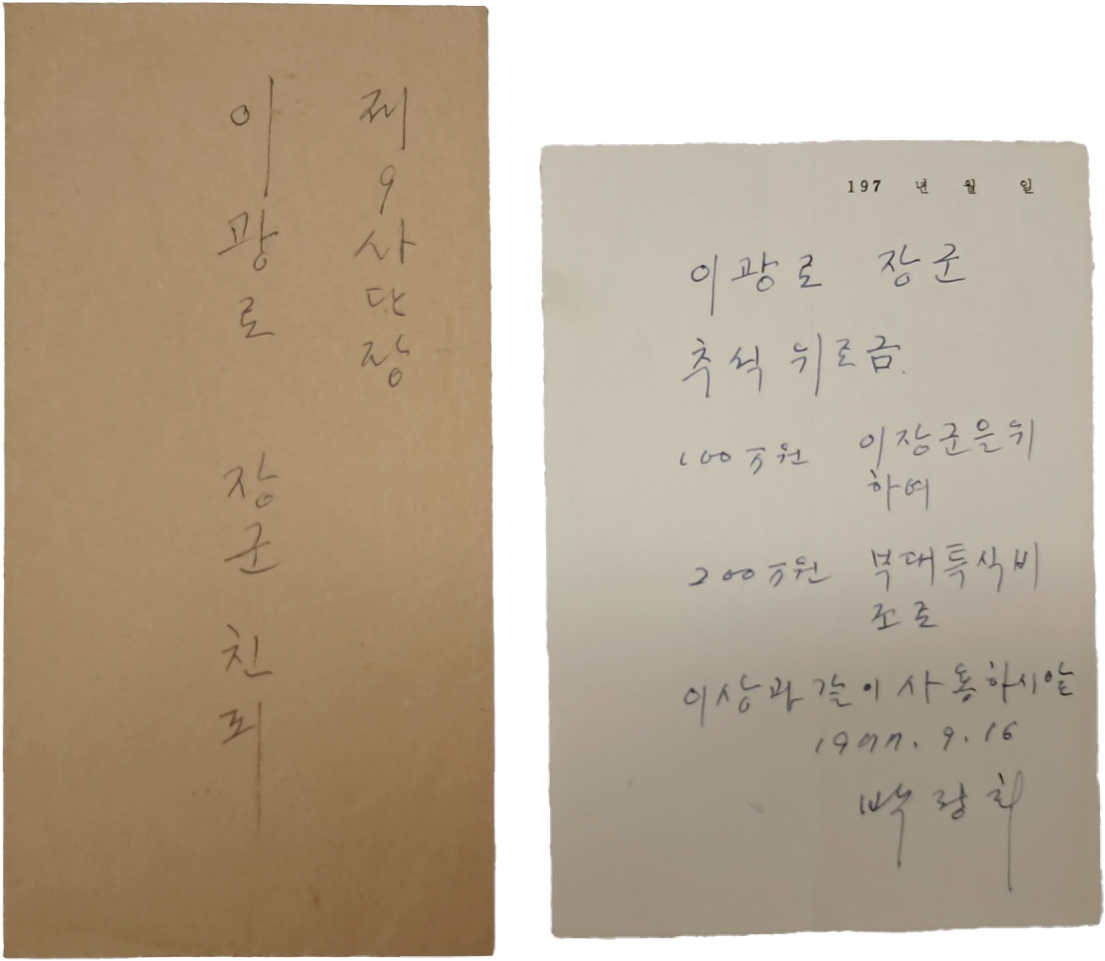 제9사단장
이광로 장군 친피
197 년 월 일
이광로 장군
추석 위로금.
100万원 이장군을위
하여
200万원 부대특식비
조로
이상과같이사용하시압
1977. 9. 16